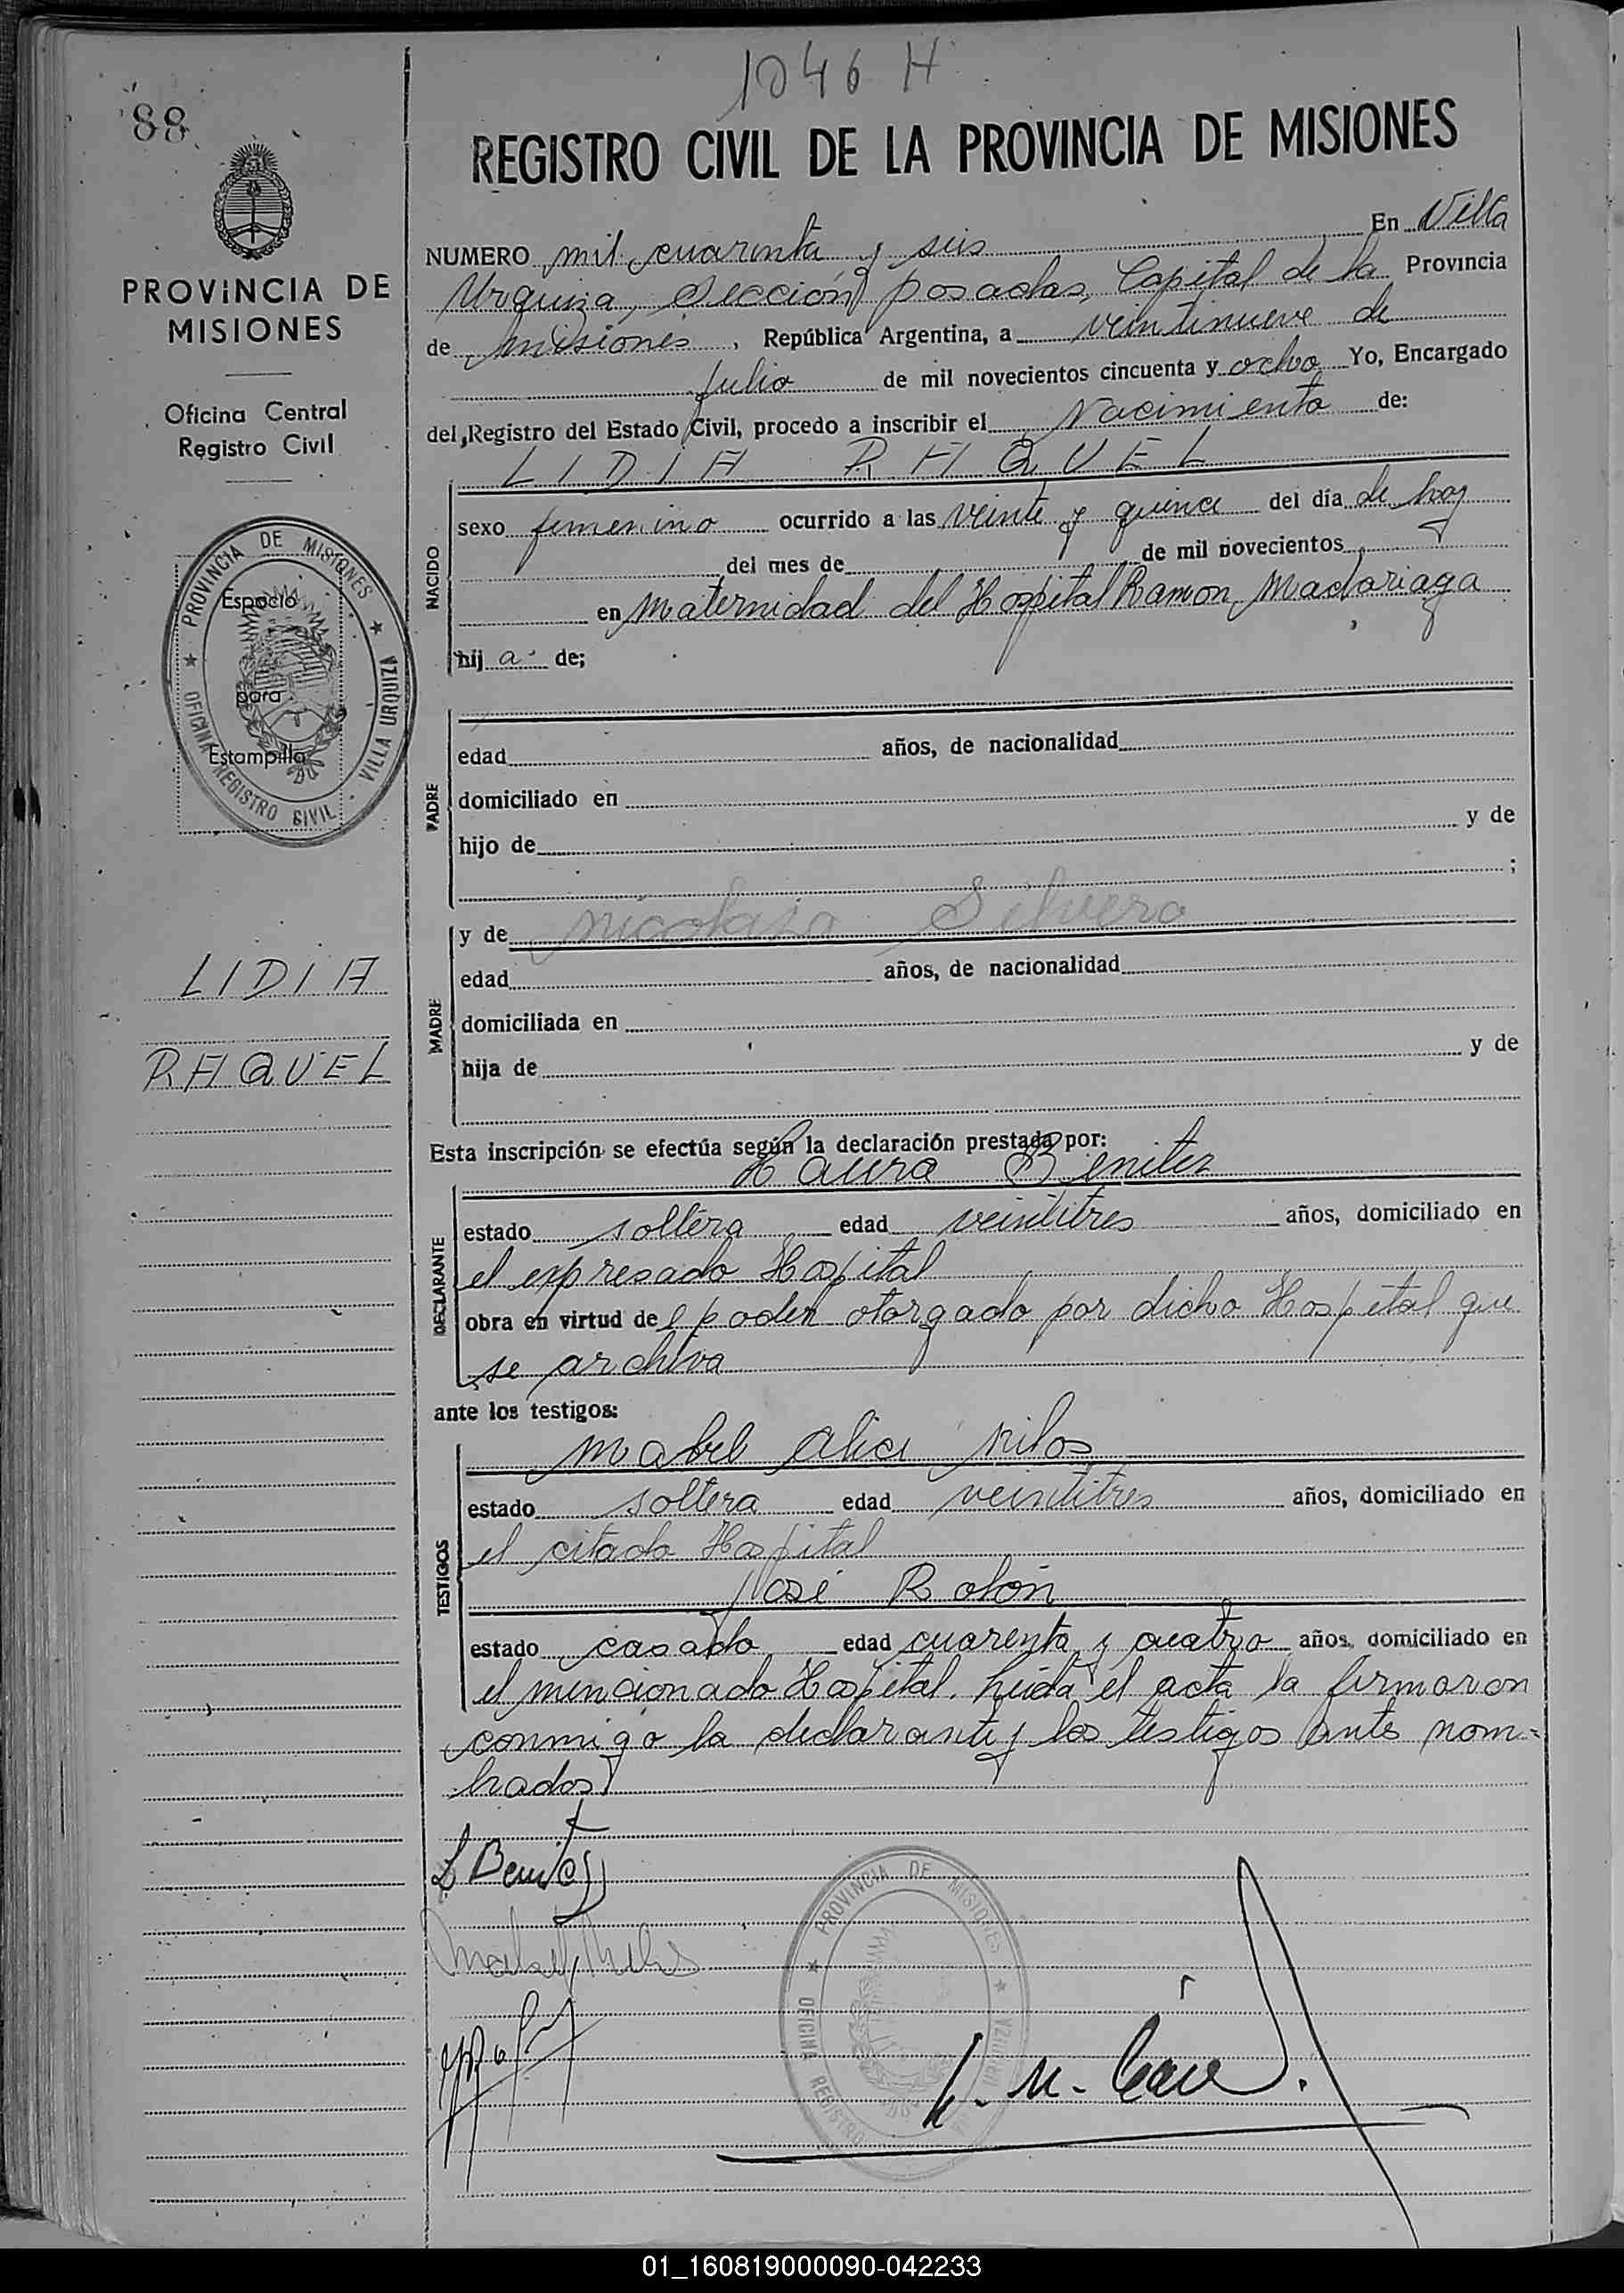 1046 H
88
REGISTRO CIVIL DE LA PROVINCIA DE MISIONES
PROVINCIA DE
MISIONES
Oficina Central
Registro Civil
PROVINCIA DE MISIONES
OFICINA REGISTRO CIVIL - VILLA URQUIZA
Espacio
para
Estampilla
LIDIA
RAQUEL
NUMERO mil cuarenta y seis En Villa
Urquiza, Sección posadas, Capital de la Provincia
de Misiones, República Argentina, a veintinueve de
Julio de mil novecientos cincuenta y ocho Yo, Encargado
del Registro del Estado Civil, procedo a inscribir el Nacimiento de:
LIDIA RAQUEL
NACIDO
sexo femenino ocurrido a las veinte y quince del día de hoy
del mes de de mil novecientos
en Maternidad del Hospital Ramon Madariaga
hij a de;
PADRE
edad años, de nacionalidad
domiciliado en
hijo de y de
;
MADRE
y de Nicolasa Silvero
edad años, de nacionalidad
domiciliada en
hija de y de
Esta inscripción se efectúa según la declaración prestada por:
Laura Benitez
DECLARANTE
estado soltera edad veintitres años, domiciliado en
el expresado Hospital
obra en virtud de l poder otorgado por dicho Hospital que
se archiva
ante los testigos:
Mabel Alice
TESTIGOS
estado soltera edad veintitres años, domiciliado en
el citado Hospital
José Rolón
estado casado edad cuarenta y cuatro años, domiciliado en
el mencionado Hospital. Leida el acta la firmaron
conmigo la declarante y los testigos antes nom=
brados
L Benitez
PROVINCIA DE MISIONES
OFICINA REGISTRO URQUIZA
01_160819000090-042233